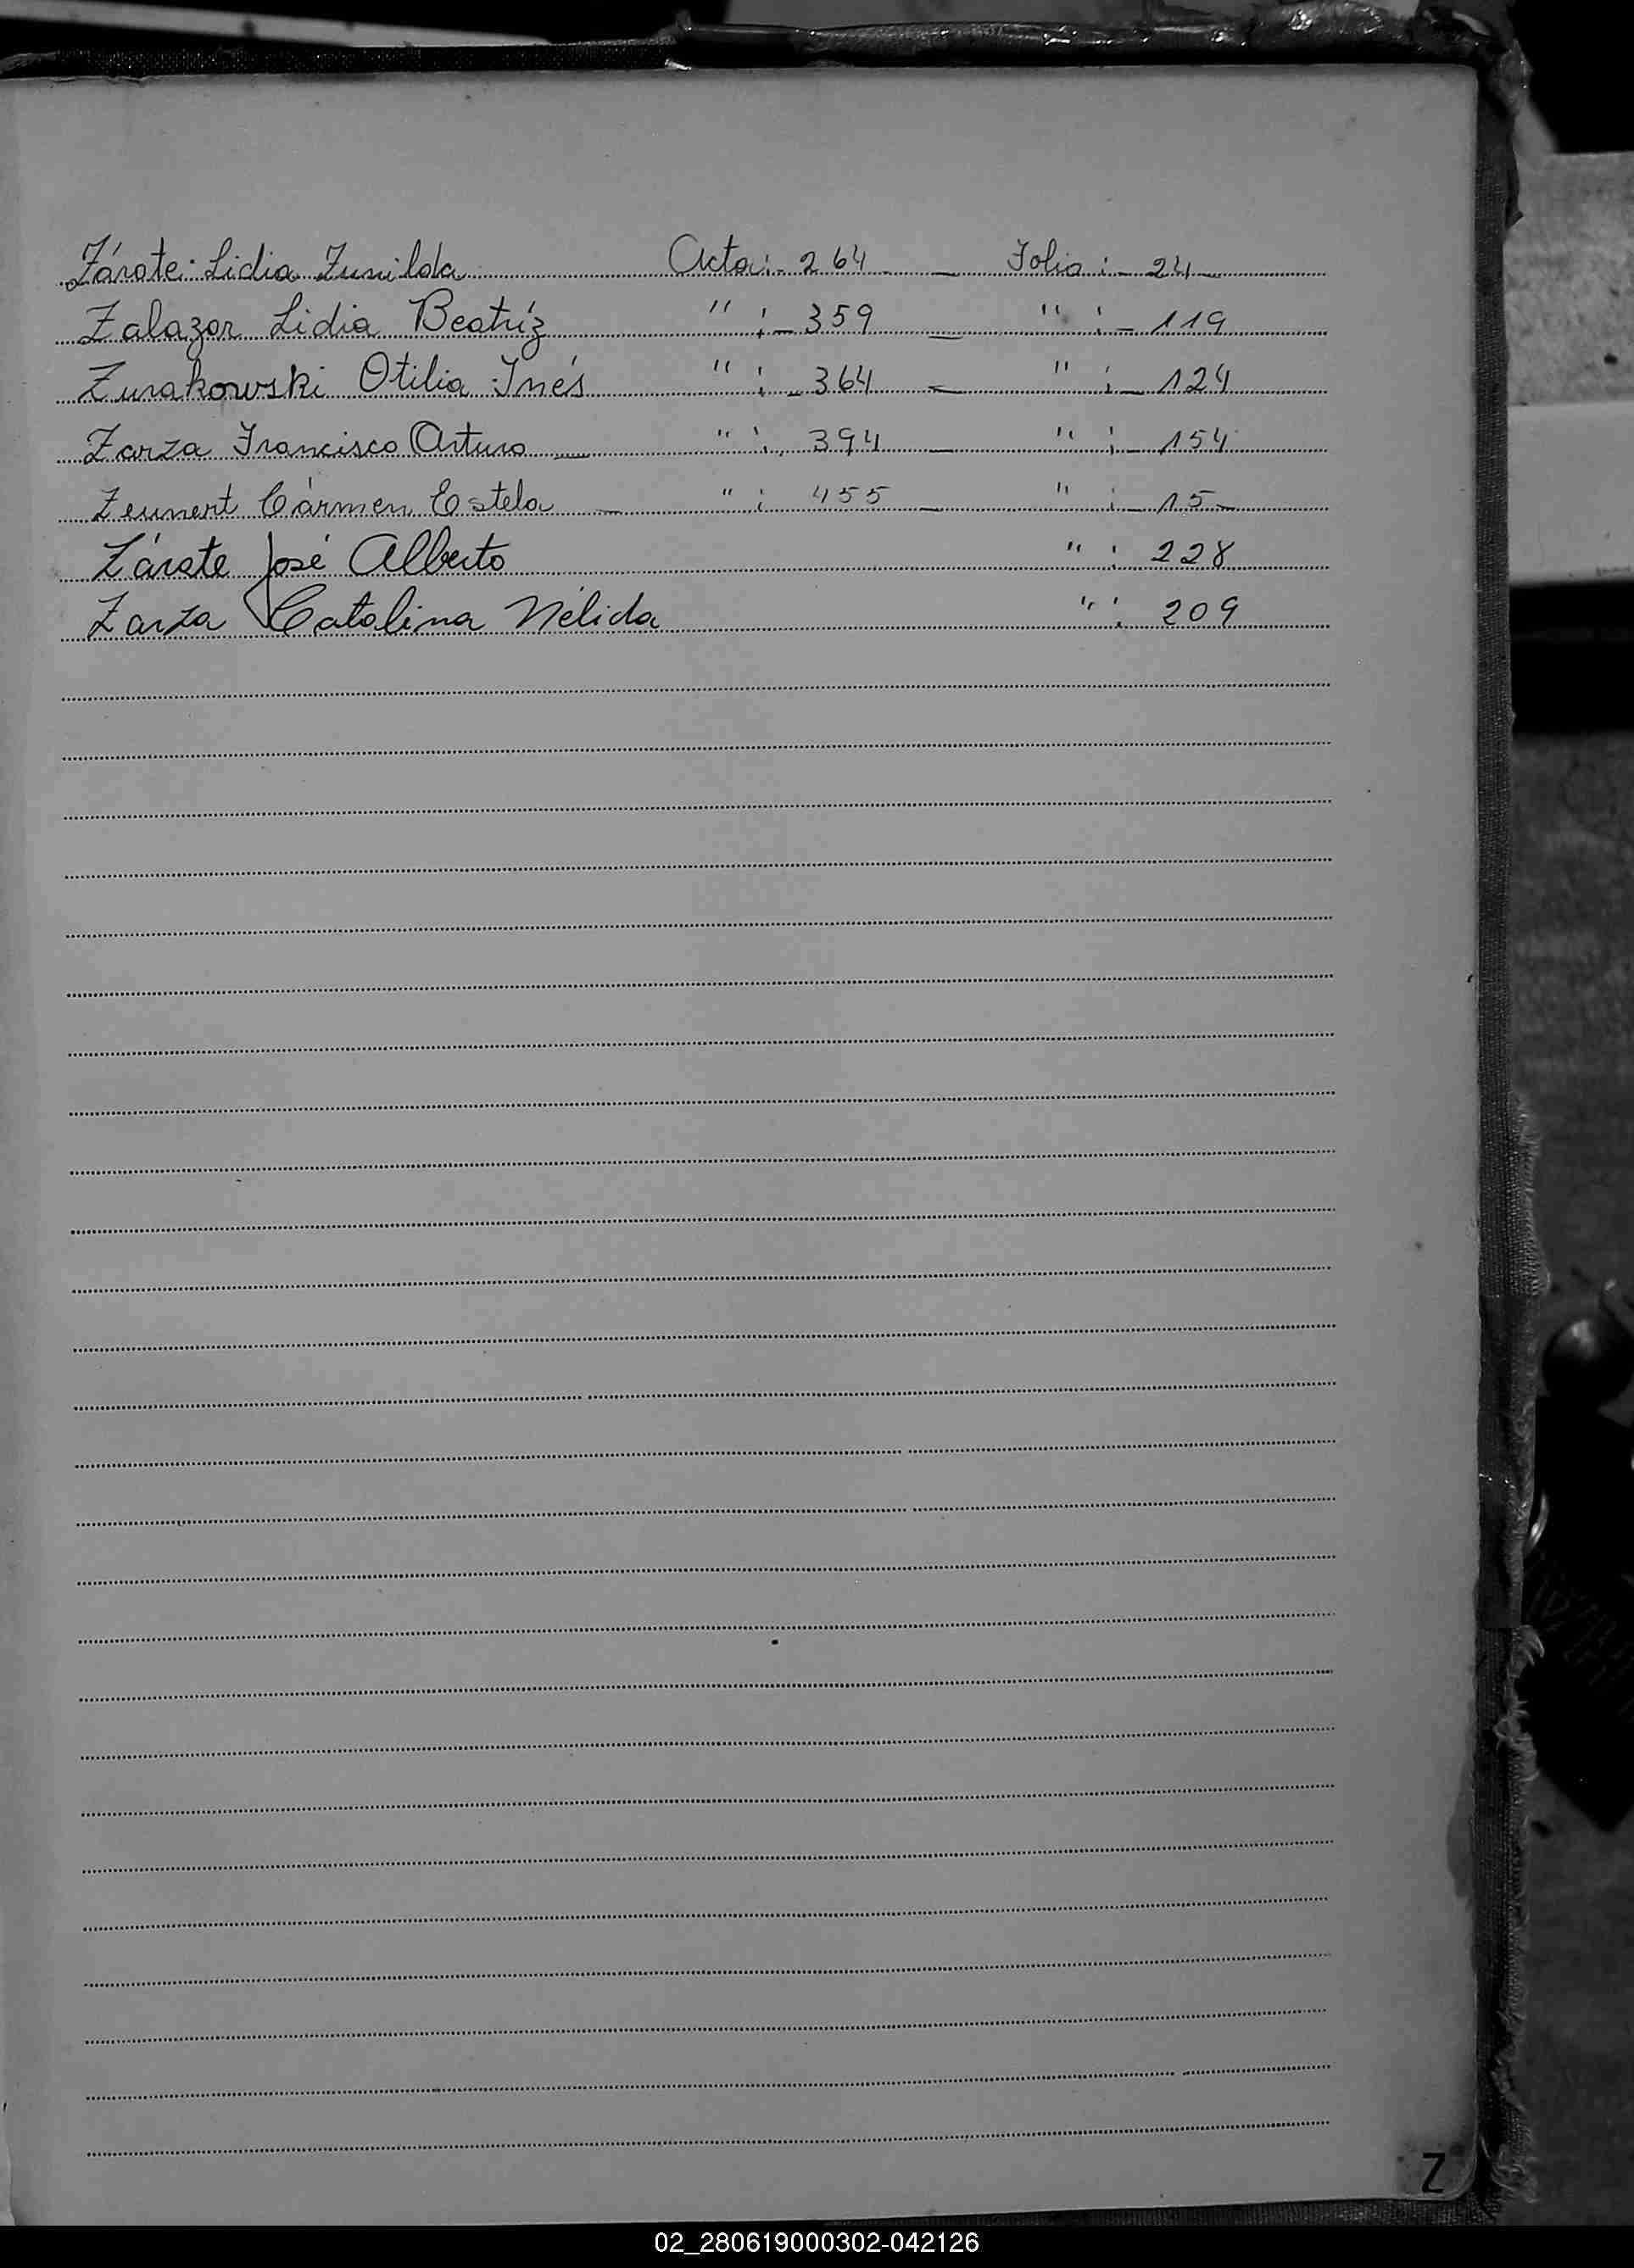 Zárate Lidia Zunilda Acta:- 264 — Folio:- 24 —
Zalazar Lidia Beatríz " :- 359 — " :- 119
Zurakowski Otilia Inés " :- 364 — " :- 124
Zarza Francisco Arturo — " : 394 — " :- 154
Zeunert Cármen Estela — " : 455 — " :- 15 —
Zárate José Alberto " : 228
Zarza Catalina Nélida " : 209
Z
02_280619000302-042126